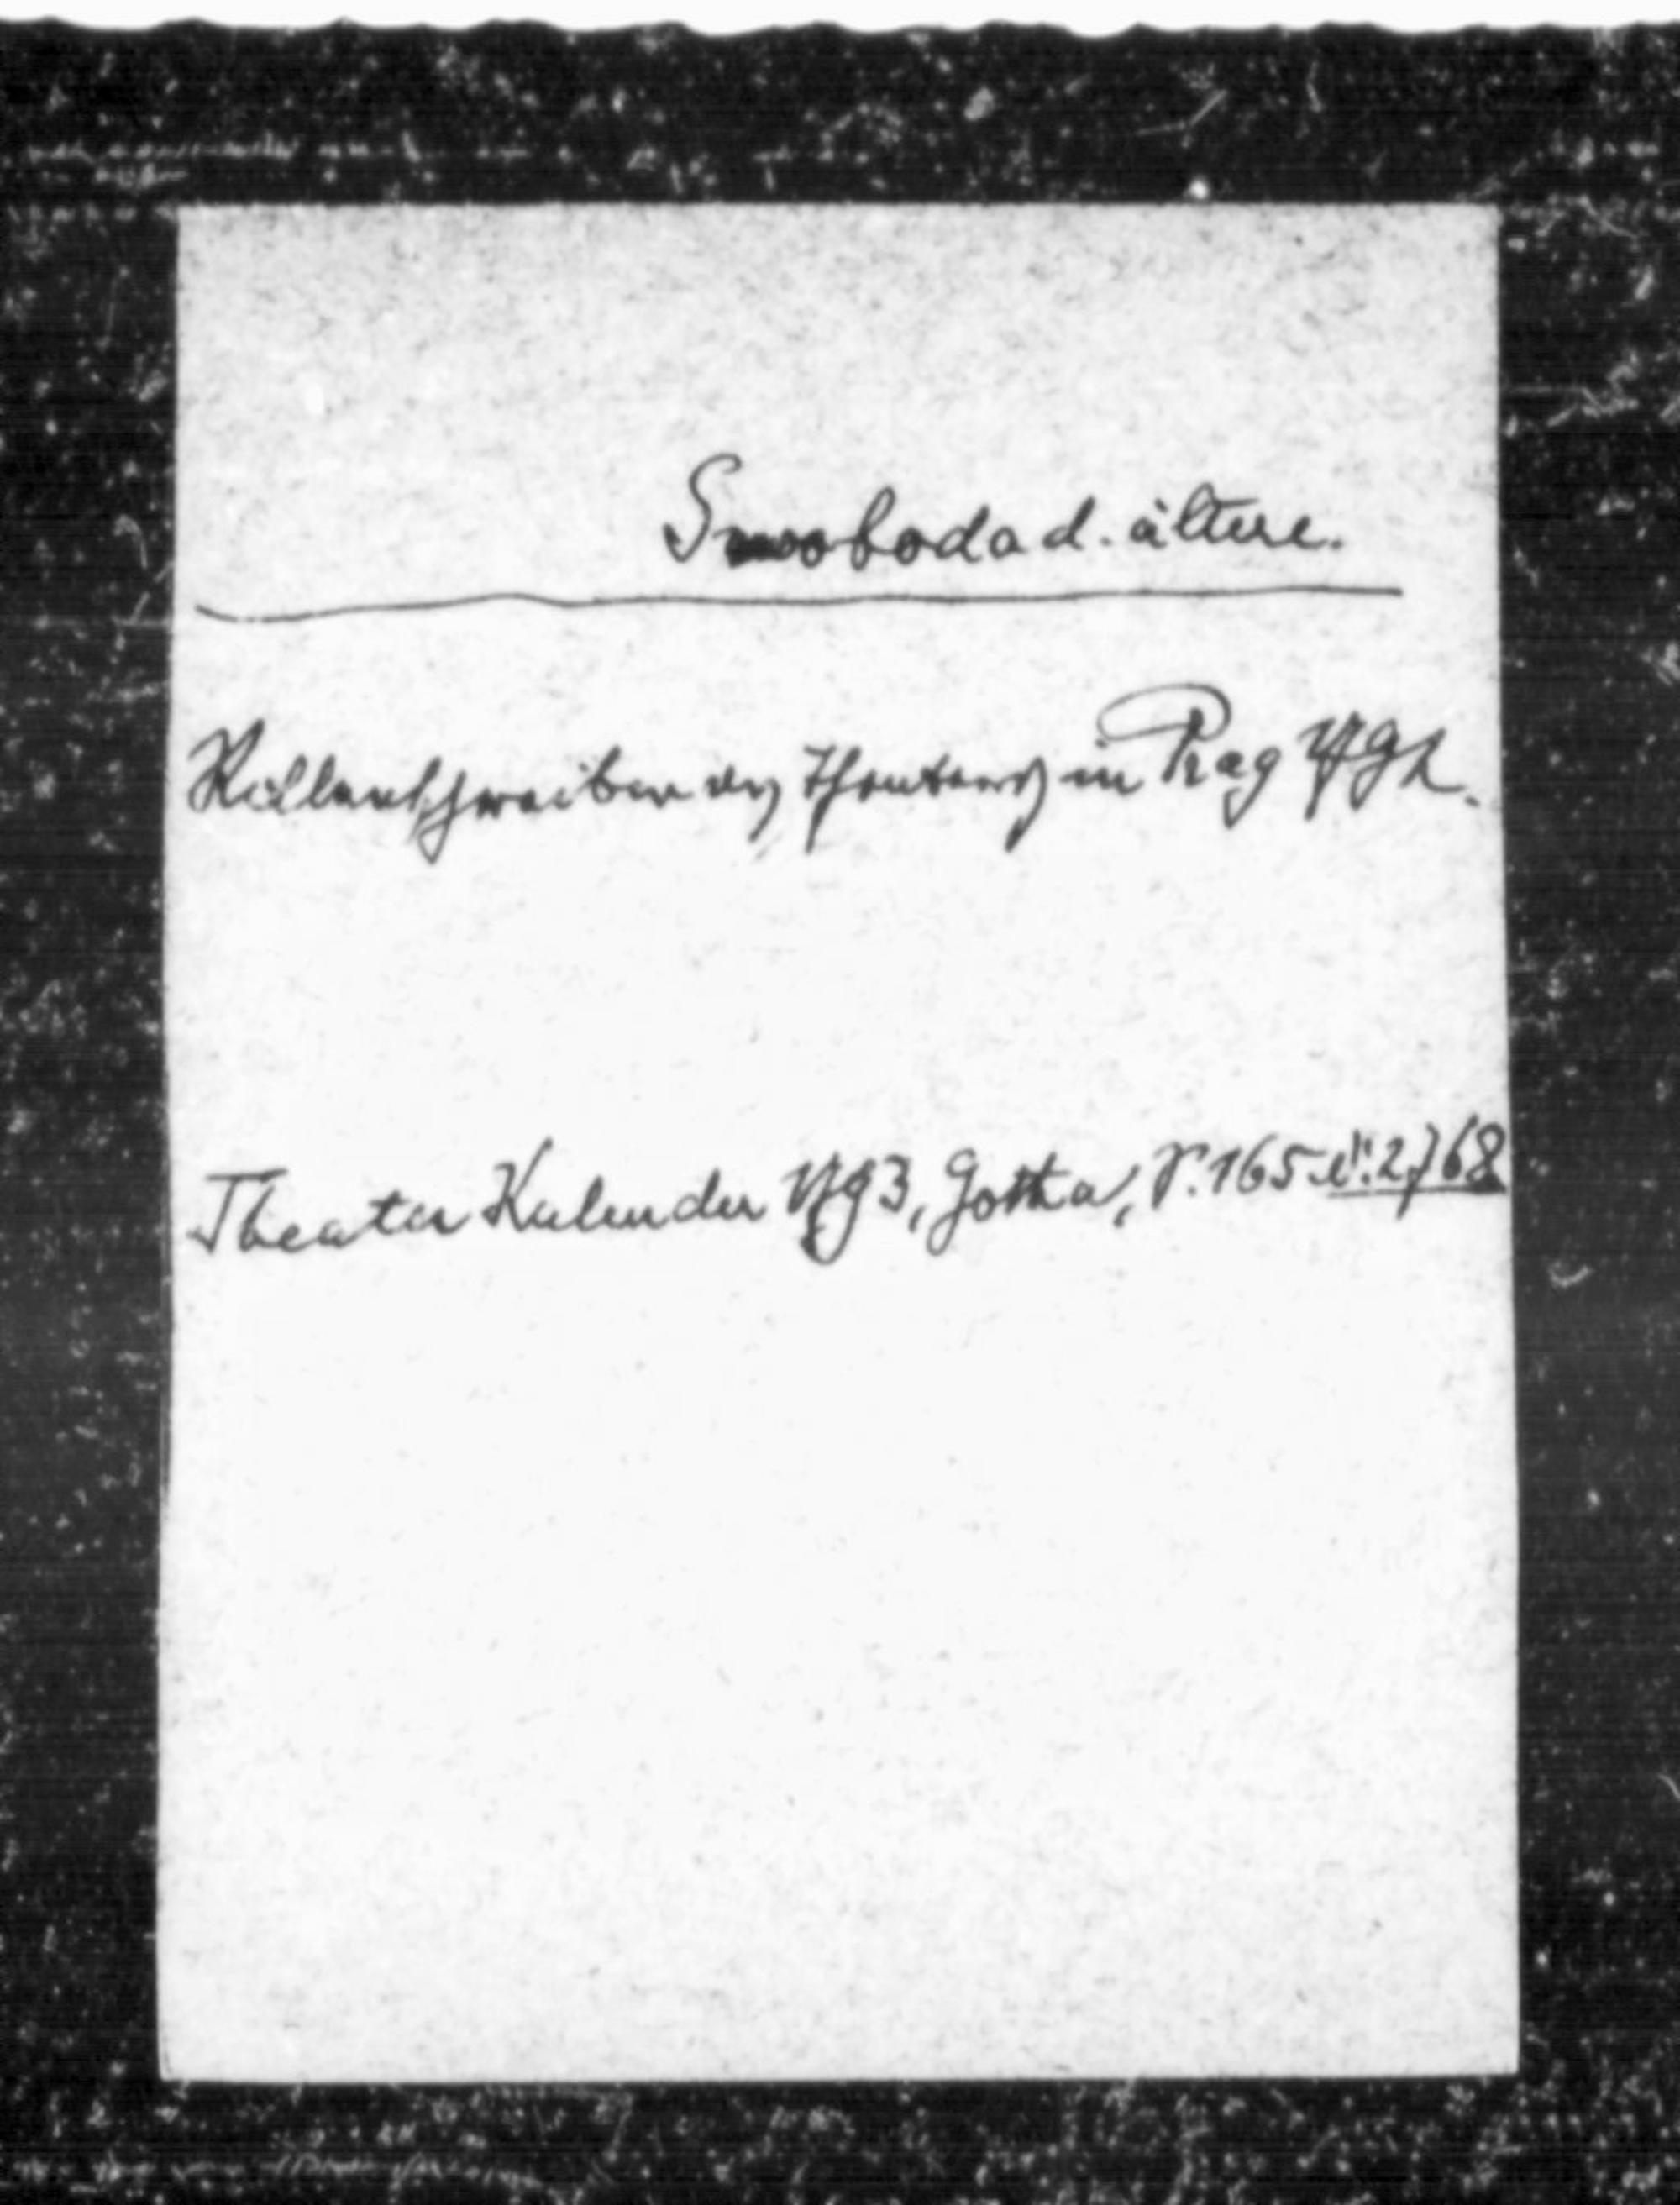 Swoboda d. ältere.
Rollenschreiber des Theaters in Prag 1792.
Theater Kalender 1793, Gotha, S. 165 2768